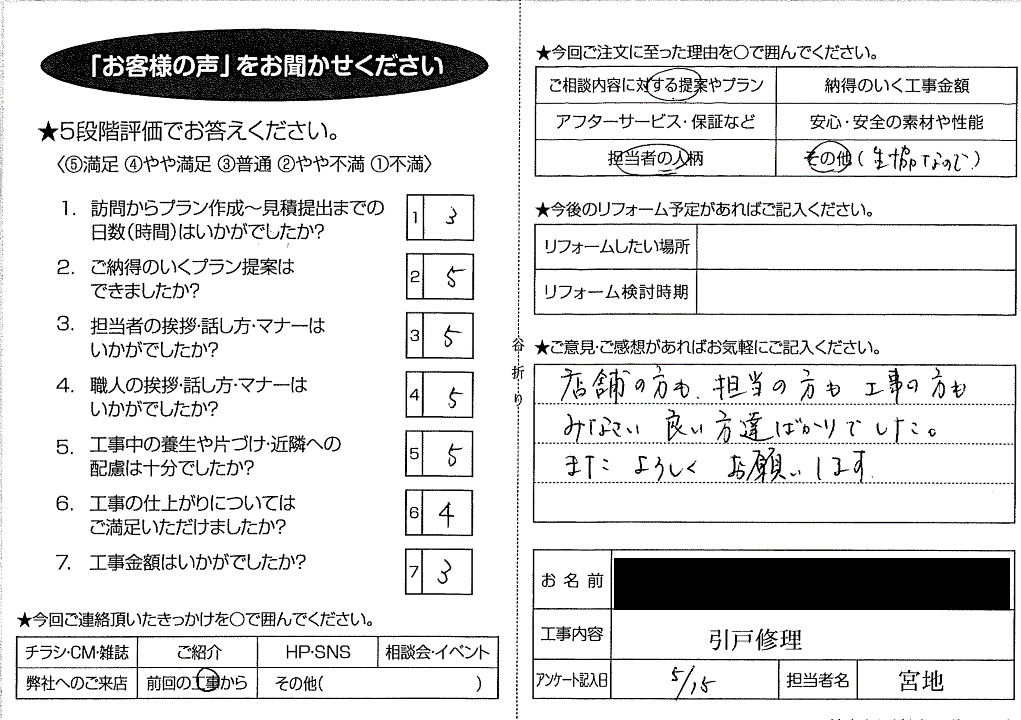 「お客様の声」をお聞かせください
★5段階評価でお答えください。
〈⑤満足 ④やや満足 ③普通 ②やや不満 ①不満〉
1. 訪問からプラン作成～見積提出までの
日数(時間)はいかがでしたか?
1 3
2. ご納得のいくプラン提案は
できましたか?
2 5
3. 担当者の挨拶・話し方・マナーは
いかがでしたか?
3 5
4. 職人の挨拶・話し方・マナーは
いかがでしたか?
4 5
5. 工事中の養生や片づけ・近隣への
配慮は十分でしたか?
5 5
6. 工事の仕上がりについては
ご満足いただけましたか?
6 4
7. 工事金額はいかがでしたか?
7 3
★今回ご連絡頂いたきっかけを〇で囲んでください。
チラシ・CM・雑誌 ご紹介 HP・SNS 相談会・イベント
弊社へのご来店 前回の工事から その他( )
谷折り
★今回ご注文に至った理由を〇で囲んでください。
ご相談内容に対する提案やプラン 納得のいく工事金額
アフターサービス・保証など 安心・安全の素材や性能
担当者の人柄 その他(生協なので)
★今後のリフォーム予定があればご記入ください。
リフォームしたい場所
リフォーム検討時期
★ご意見・ご感想があればお気軽にご記入ください。
店舗の方も、担当の方も 工事の方も
みなさい 良い方達ばかりでした。
また よろしく お願いします
お名前
工事内容 引戸修理
アンケート記入日 5/15 担当者名 宮地